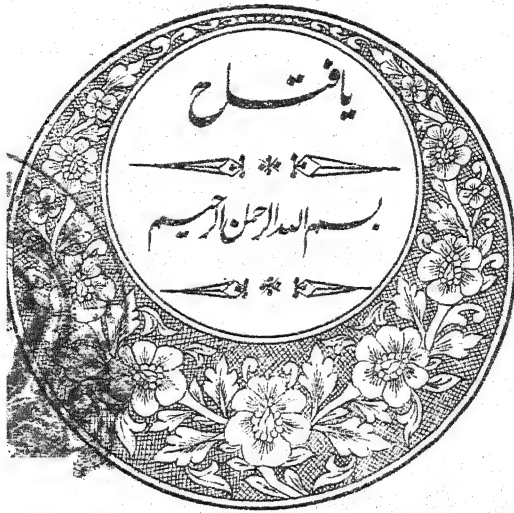 یا فتاح
بسم اللہ الرحمن الرحیم